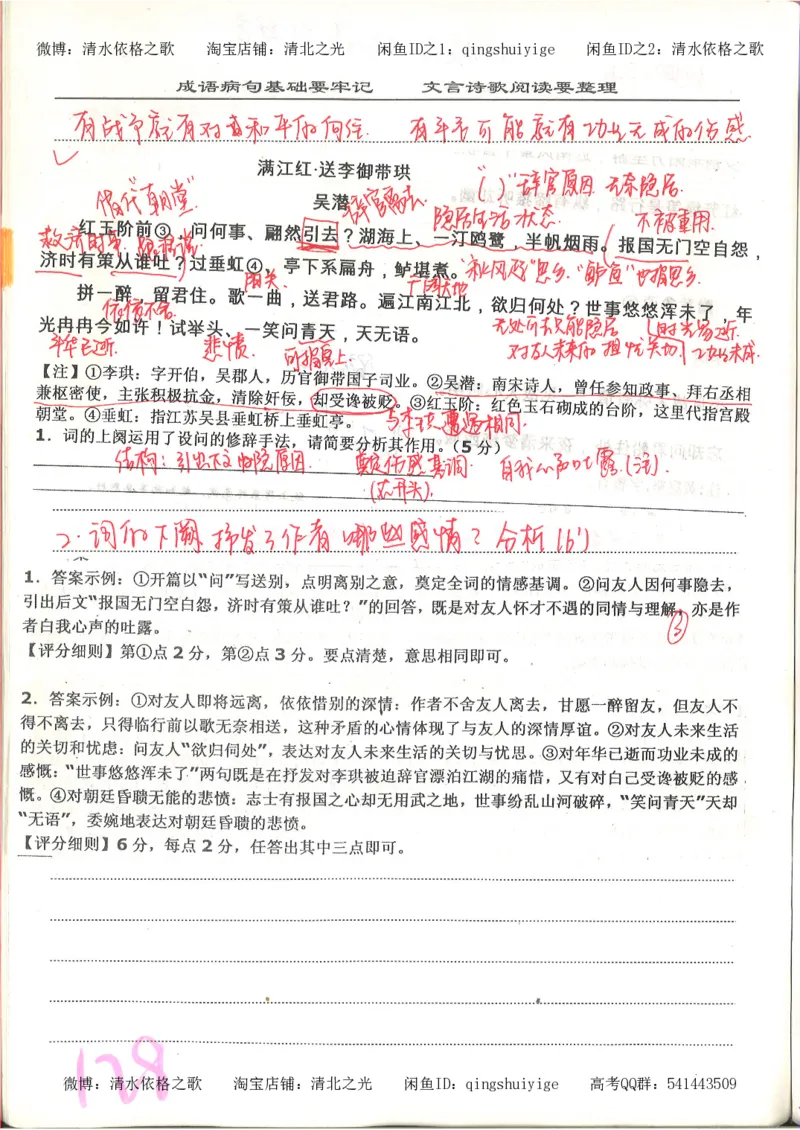 微博：清水依格之歌 淘宝店铺：清北之光 闲鱼ID之1：qingshuiyige 闲鱼ID之2：清水依格之歌
成语病句基础要牢记 文言诗歌阅读要整理
有战争就有对和平的向往 有辛弃可能就有功业无成的伤感
满江红·送李御带珙
"( )"辞官原因 无奈隐居
借代"朝堂"
吴潜
辞官离去
隐居生活状态
不被重用
红玉阶前③，问何事、翩然引去？湖海上、一汀鸥鹭，半帆烟雨。报国无门空自怨，
济时有策从谁吐？过垂虹④，亭下系扁舟，鲈堪煮。
"秋风起"思乡 "鲈鱼"也指思乡
拼一醉，留君住。歌一曲，送君路。遍江南江北，欲归何处？世事悠悠浑未了，年
依依不舍
光冉冉今如许！试举头、一笑问青天，天无语。
无处可去只能隐居
年华已逝
悲愤
可指皇上
对友人未来的担忧关切
功业未成
【注】①李珙：字开伯，吴郡人，历官御带国子司业。②吴潜：南宋诗人，曾任参知政事、拜右丞相
兼枢密使，主张积极抗金，清除奸佞，却受谗被贬。③红玉阶：红色玉石砌成的台阶，这里代指宫殿
朝堂。④垂虹：指江苏吴县垂虹桥上垂虹亭。
与李珙遭遇相同
1．词的上阕运用了设问的修辞手法，请简要分析其作用。（5分）
结构：引出下文归隐原因 奠定伤感基调 自我心声吐露（注）
（在开头）
2．词的下阕抒发了作者哪些感情？分析（6'）
1．答案示例：①开篇以“问”写送别，点明离别之意，奠定全词的情感基调。②问友人因何事隐去，
引出后文“报国无门空自怨，济时有策从谁吐？”的回答，既是对友人怀才不遇的同情与理解，亦是作
者自我心声的吐露。
③
【评分细则】第①点2分，第②点3分。要点清楚，意思相同即可。
2．答案示例：①对友人即将远离，依依惜别的深情：作者不舍友人离去，甘愿一醉留友，但友人不
得不离去，只得临行前以歌无奈相送，这种矛盾的心情体现了与友人的深情厚谊。②对友人未来生活
的关切和忧虑：问友人“欲归何处”，表达对友人未来生活的关切与忧思。③对年华已逝而功业未成的
感慨：“世事悠悠浑未了”两句既是在抒发对李珙被迫辞官漂泊江湖的痛惜，又有对自己受谗被贬的感
慨。④对朝廷昏聩无能的悲愤：志士有报国之心却无用武之地，世事纷乱山河破碎，“笑问青天”天却
“无语”，委婉地表达对朝廷昏聩的悲愤。
【评分细则】6分，每点2分，任答出其中三点即可。
128
微博：清水依格之歌 淘宝店铺：清北之光 闲鱼ID：qingshuiyige 高考QQ群：541443509